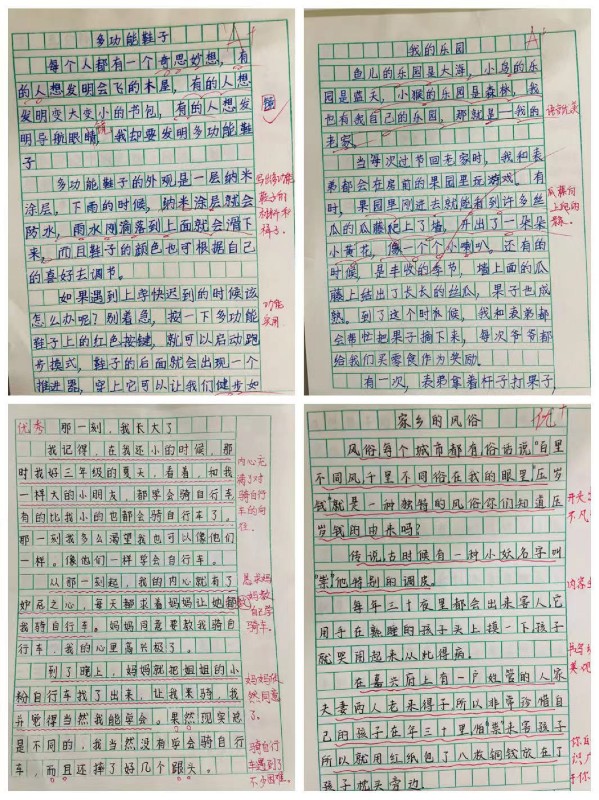 多功能鞋子
每个人都有一个奇思妙想,有
的人想发明会飞的木屋,有的人想
发明变大变小的书包,有的人想发
明导航眼睛,我却要发明多功能鞋
子
多功能鞋子的外观是一层纳米
涂层,下雨的时候,纳米涂层就会
防水,雨水刚滴落到上面就会滑下
来,而且鞋子的颜色也可根据自己
的喜好去调节。
如果遇到上学快迟到的时候该
怎么办呢?别着急,按一下多功能
鞋子上的红色按键,就可以启动跑
步模式,鞋子的后面就会出现一个
推进器,穿上它可以让我们健步如
镜
功能
实用
A+
我的乐园
鱼儿的乐园是大海,小鸟的乐
园是蓝天,小猴的乐园是森林,我
也有我自己的乐园,那就是——我的
老家。
当每次过节回老家时,我和表
弟都会在房前的果园里玩游戏。有
时,果园里刚进去就能看到许多丝
瓜的瓜藤爬上了墙,开出了一朵朵
小黄花,像一个个小喇叭。还有的
时候,是丰收的季节,墙上面的瓜
藤上结出了长长的丝瓜,果子也成
熟。到了这个时候,我和表弟都
会帮忙把果子摘下来,每次爷爷都
给我们买零食作为奖励。
有一次,表弟拿着杆子打果子,
A+
优秀 那一刻,我长大了
我记得,在我还小的时候,那
时我好三年级的夏天,看着,和我
一样大的小朋友,都学会骑自行车
有的比我小的也都会骑自行车了。
那一刻我多么渴望我也可以像他们
一样。像他们一样学会自行车。
从那一刻起,我的内心就有了
妒忌之心,每天都求着妈妈让她教
我骑自行车。妈妈同意要教我骑自
行车,我的心里高兴极了。
到了晚上,妈妈就把姐姐的小
粉自行车找了出来,让我来骑,我
并觉得当然我能学会。果然现实总
是不同的,我当然没有学会骑自行
车,而且还摔了好几个跟头。
内心充
满了对
骑自行
车的向
往。
骑自行
车遇到了
不少困难。
家乡的风俗
优+
风俗每个城市都有俗话说"百里
不同风千里不同俗在我的眼里"压岁
钱"就是一种独特的风俗你们知道压
岁钱的由来吗?
传说,古时候有一种小妖名字叫
"祟"他特别的调皮。
每年三十夜里都会出来害人它
用手在熟睡的孩子头上摸一下孩子
就哭闹起来从此得病。
在嘉兴府上有一户姓管的人家
夫妻两人老来得子所以非常珍惜自
己的孩子在年三十里怕"祟"来害孩子
所以就用红纸包了八枚铜钱放在了
孩子枕头旁边。